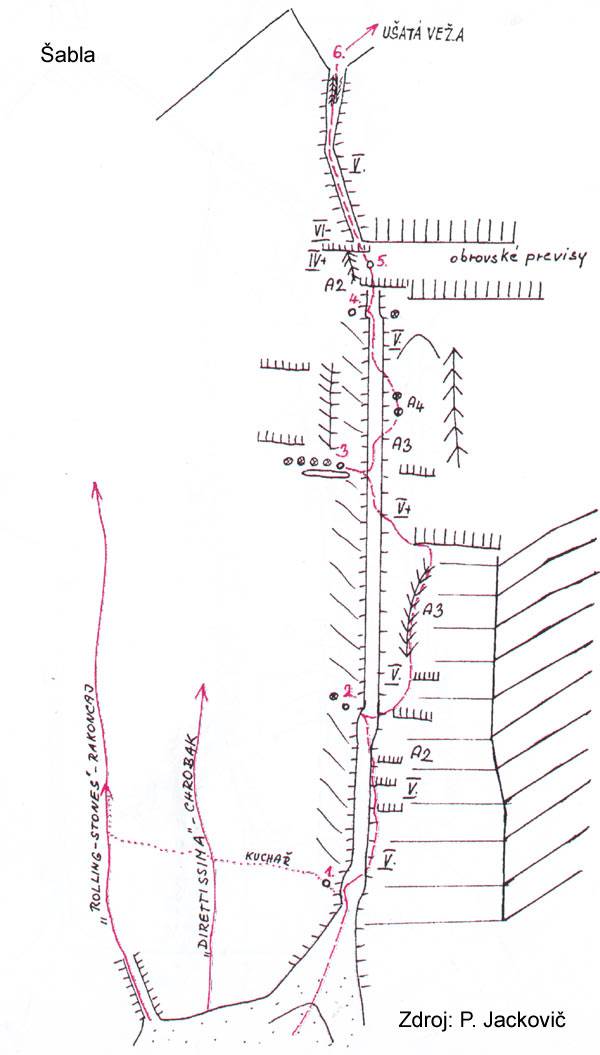 Šabla
6. UŠATÁ VEŽA
V.
VI-
IV+
5.
obrovské previsy
A2
4.
V.
A4
A3
3
V+
A3
V.
2.
A2
V.
„ROLLING-STONES"-RAKONCAJ
„DIRETTISSIMA"-CHROBAK
KUCHAŘ
1.
V.
Zdroj: P. Jackovič